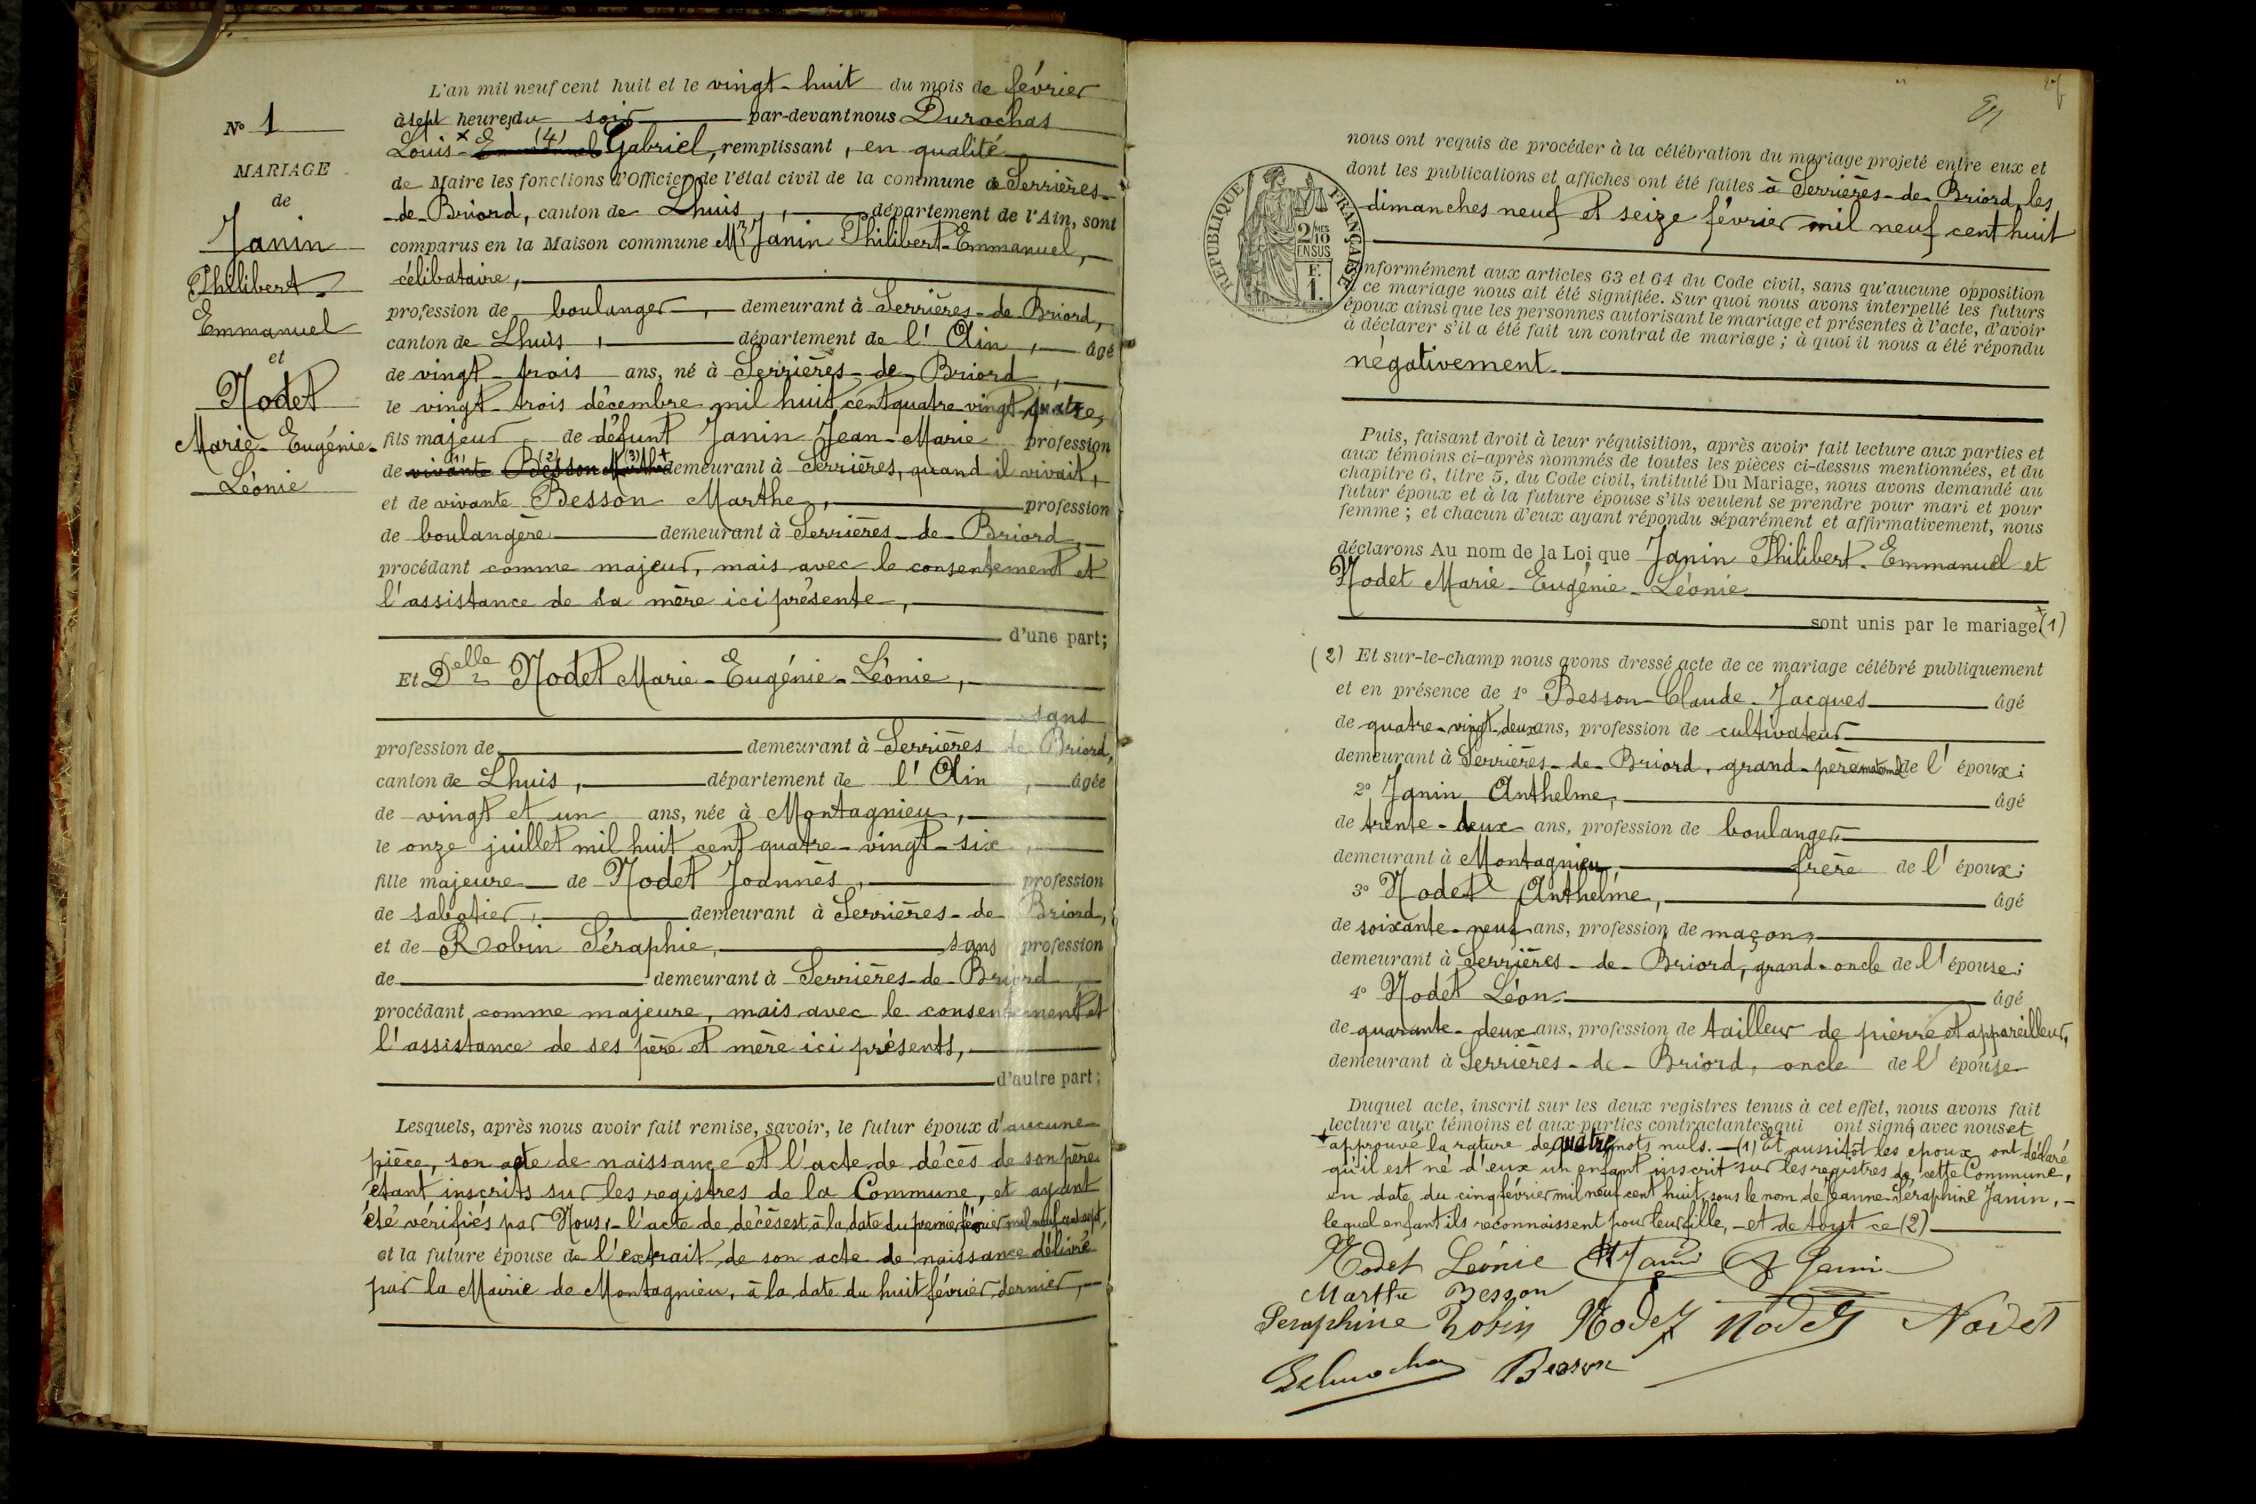 L'an mil neuf cent huit et le vingt-huit du mois de février
à sept heures du soir par-devant nous Durochas
Louis Gabriel, remplissant, en qualité
de Maire les fonctions d'Officier de l'état civil de la commune de Serrières-
de-Briord, canton de Lhuis, département de l'Ain, sont
comparus en la Maison commune Mr Janin Philibert-Emmanuel,
célibataire,
profession de boulanger, demeurant à Serrières-de-Briord,
canton de Lhuis, département de l'Ain, âgé
de vingt-trois ans, né à Serrières-de-Briord,
le vingt-trois décembre mil huit cent quatre-vingt-quatre,
fils majeur de défunt Janin Jean-Marie profession
de vivante Besson Marthe demeurant à Serrières, quand il vivait,
et de vivante Besson Marthe, profession
de boulangère demeurant à Serrières-de-Briord,
procédant comme majeur, mais avec le consentement et
l'assistance de sa mère ici présente,
d'une part;
Et Delle Nodet Marie-Eugénie-Léonie,
sans
profession de demeurant à Serrières de Briord,
canton de Lhuis, département de l'Ain, âgée
de vingt et un ans, née à Montagnieu,
le onze juillet mil huit cent quatre-vingt-six,
fille majeure de Nodet Joannès, profession
de sabotier, demeurant à Serrières-de-Briord,
et de Robin Séraphie, sans profession
de demeurant à Serrières-de-Briord
procédant comme majeure, mais avec le consentement et
l'assistance de ses père et mère ici présents,
d'autre part;
Lesquels, après nous avoir fait remise, savoir, le futur époux d'aucune
pièce, son acte de naissance et l'acte de décès de son père
étant inscrits sur les registres de la Commune, et ayant
été vérifiés par Nous,- l'acte de décès est à la date du premier février mil neuf cent sept,
et la future épouse de l'extrait de son acte de naissance délivré
par la Mairie de Montagnieu, à la date du huit février dernier,
N° 1
MARIAGE
de
Janin
Philibert-
Emmanuel
et
Nodet
Marie-Eugénie-
Léonie
nous ont requis de procéder à la célébration du mariage projeté entre eux et
dont les publications et affiches ont été faites à Serrières-de-Briord, les
dimanches neuf et seize février mil neuf cent huit
RÉPUBLIQUE FRANÇAISE
2/10 EN SUS
F. 1.
conformément aux articles 63 et 64 du Code civil, sans qu'aucune opposition
à ce mariage nous ait été signifiée. Sur quoi nous avons interpellé les futurs
époux ainsi que les personnes autorisant le mariage et présentes à l'acte, d'avoir
à déclarer s'il a été fait un contrat de mariage; à quoi il nous a été répondu
négativement.
Puis, faisant droit à leur réquisition, après avoir fait lecture aux parties et
aux témoins ci-après nommés de toutes les pièces ci-dessus mentionnées, et du
chapitre 6, titre 5, du Code civil, intitulé Du Mariage, nous avons demandé au
futur époux et à la future épouse s'ils veulent se prendre pour mari et pour
femme; et chacun d'eux ayant répondu séparément et affirmativement, nous
déclarons Au nom de la Loi que Janin Philibert-Emmanuel et
Nodet Marie-Eugénie-Léonie
sont unis par le mariage. (1)
(2) Et sur-le-champ nous avons dressé acte de ce mariage célébré publiquement
et en présence de 1° Besson Claude-Jacques âgé
de quatre-vingt-deux ans, profession de cultivateur
demeurant à Serrières-de-Briord, grand-père maternel de l'époux;
2° Janin Anthelme, âgé
de trente-deux ans, profession de boulanger,
demeurant à Montagnieu frère de l'époux;
3° Nodet Anthelme, âgé
de soixante-neuf ans, profession de maçon,
demeurant à Serrières-de-Briord, grand-oncle de l'épouse;
4° Nodet Léon âgé
de quarante-deux ans, profession de tailleur de pierre et appareilleur,
demeurant à Serrières-de-Briord, oncle de l'épouse
Duquel acte, inscrit sur les deux registres tenus à cet effet, nous avons fait
lecture aux témoins et aux parties contractantes qui ont signé avec nous et
approuvé la rature de quatre mots nuls. - (1) Et aussitôt les époux ont déclaré
qu'il est né d'eux un enfant inscrit sur les registres de cette Commune,
en date du cinq février mil neuf cent huit, sous le nom de Jeanne-Séraphine Janin, -
lequel enfant ils reconnaissent pour leur fille, - et de tout ce (2)
Nodet Léonie Janin Janin
Marthe Besson
Seraphine Robin Nodet Nodet Nodet
Durochas Besson